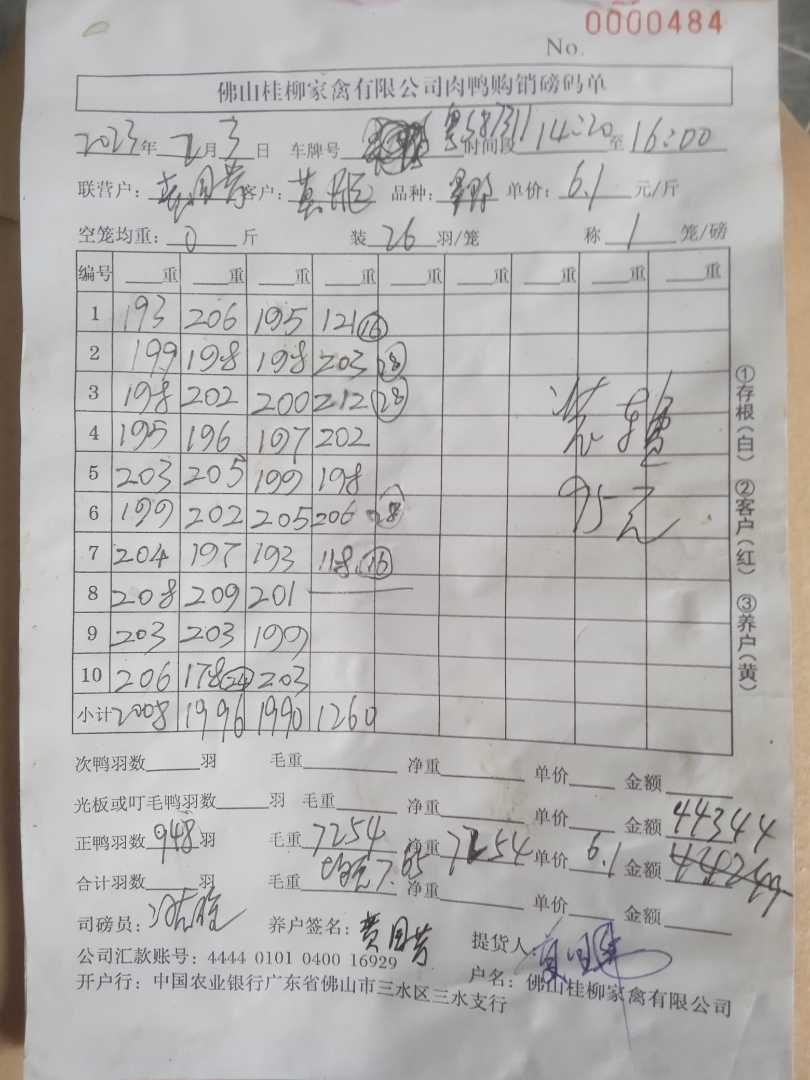 0000484
No.
佛山桂柳家禽有限公司肉鸭购销磅码单
2023年2月3日 车牌号 粤S87311 时间段14:20至16:00
联营户: 黄国芳 客户: 品种: 单价: 6.1 元/斤
空笼均重: 0 斤 装 26 羽/笼 称 1 笼/磅
编号 重 重 重 重 重 重 重 重 重
1 193 206 195 121 16
2 199 198 198 203 28
3 198 202 200 212 28
4 195 196 197 202
5 203 205 199 198
6 199 202 205 206 28
7 204 197 193 118 16
8 208 209 201
9 203 203 199
10 206 178 24 203
小计 2008 1996 1990 1260
装车
95元
①存根(白) ②客户(红) ③养户(黄)
次鸭羽数 羽 毛重 净重 单价 金额
光板或叮毛鸭羽数 羽 毛重 净重 单价 金额 44344
正鸭羽数 948 羽 毛重 7254 净重 7254 单价 6.1 金额
合计羽数 羽 毛重 均重7.65 净重 单价 金额
司磅员: 养户签名: 黄国芳 提货人:
公司汇款账号: 4444 0101 0400 16929 户名: 佛山桂柳家禽有限公司
开户行: 中国农业银行广东省佛山市三水区三水支行